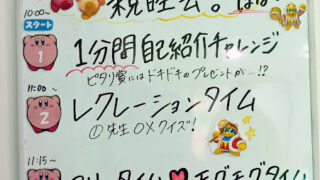 親睦会。
10:00〜
スタート
1 1分間自己紹介チャレンジ
ピタリ賞にはドキドキのプレゼントが…!?
11:00〜
2 レクレーションタイム
①先生○×クイズ!
11:15〜
タイム♥モグモグタイム